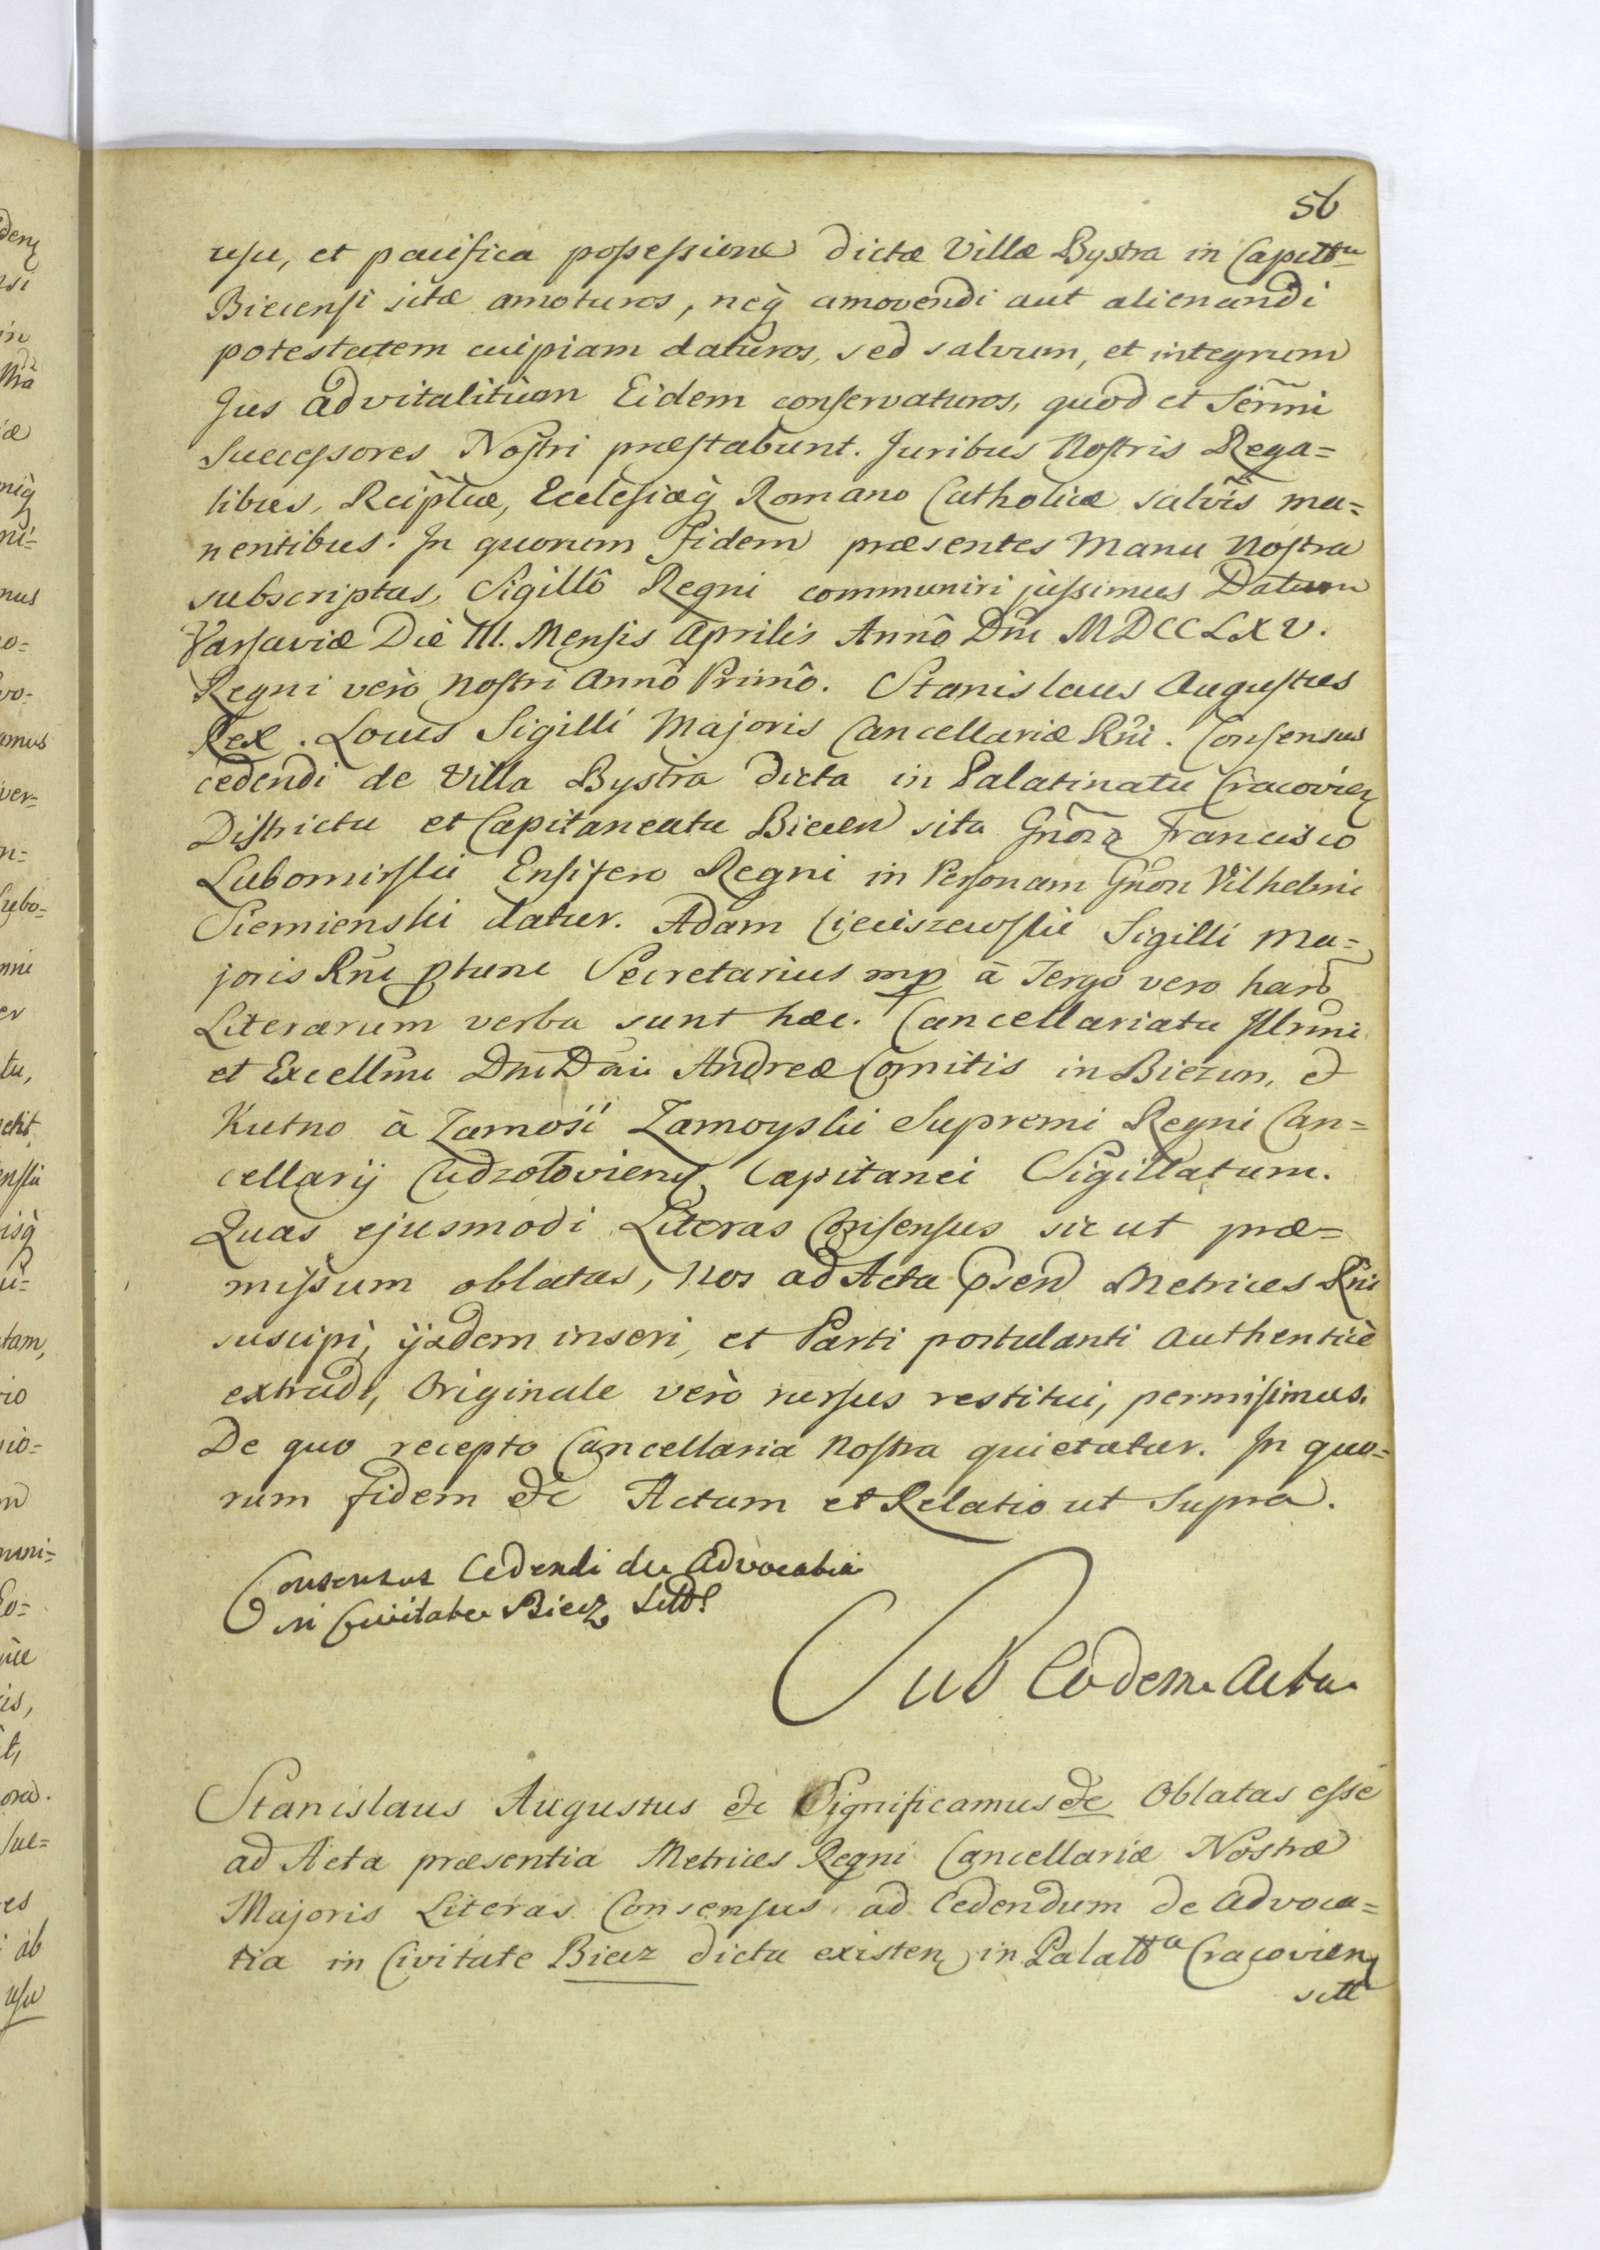 56
usu, et pacifica possessione dictæ Villæ Bystra in Capitt͠u
Biecensi sitæ amoturos, neq̀ amovendi aut alienandi
potestatem cuipiam daturos, sed salvum, et integrum
Jus advitalitium Eidem conservaturos, quod et Serm̃i
Successores Nostri præstabunt. Juribus Nostris Rega=
libus, Reip̃tuæ, Ecclesiæq̀ Romano Catholicæ salvis ma=
nentibus. In quorum Fidem præsentes Manu Nostra
subscriptas, Sigillô Regni communiri jussimus Datum
Varsaviæ Die III. Mensis Aprilis Annô Dni MDCCLXV.
Regni verò Nostri Annô Primô. Stanislaus Augustus
Rex. Locus Sigilli Majoris Cancellariæ Rni. Consensus
cedendi de Villa Bystra dicta in Palatinatu Cracovien
Districtu et Capitaneatu Biecen sita Gnõz Francisco
Lubomirski Ensifero Regni in Personam Gnõn Vilhelmi
Siemienski datur. Adam Cieciszewski Sigilli Ma=
joris Rni ptunc Secretarius mp à Tergo vero harũ
Literarum verba sunt hæc. Cancellariatu Illrmi
et Excellmi Dni Dni Andreæ Comitis in Biezun, et
Kutno à Zamość Zamoyski Supremi Regni Can=
cellarij Cudzołovien Capitanei Sigillatum.
Quas ejusmodi Literas Consensus sicut præ=
missum oblatas, Nos ad Acta psen Metrices Rni
suscipi, ijsdem inseri, et Parti postulanti authenticè
extradi, Originale verò rursus restitui, permisimus.
De quo recepto Cancellaria Nostra quietatur. In quo=
rum fidem &c Actum et Relatio ut Supra.
Consensus Cedendi de Advocatia
in Civitate Biecz
Sub Eodem Actu
Stanislaus Augustus &c Significamus &c Oblatas esse
ad Acta præsentia Metrices Regni Cancellariæ Nostræ
Majoris Literas Consensus ad Cedendum de Advoca=
tia in Civitate Biecz dicta existen in Palatt͠u Cracovien
sitt